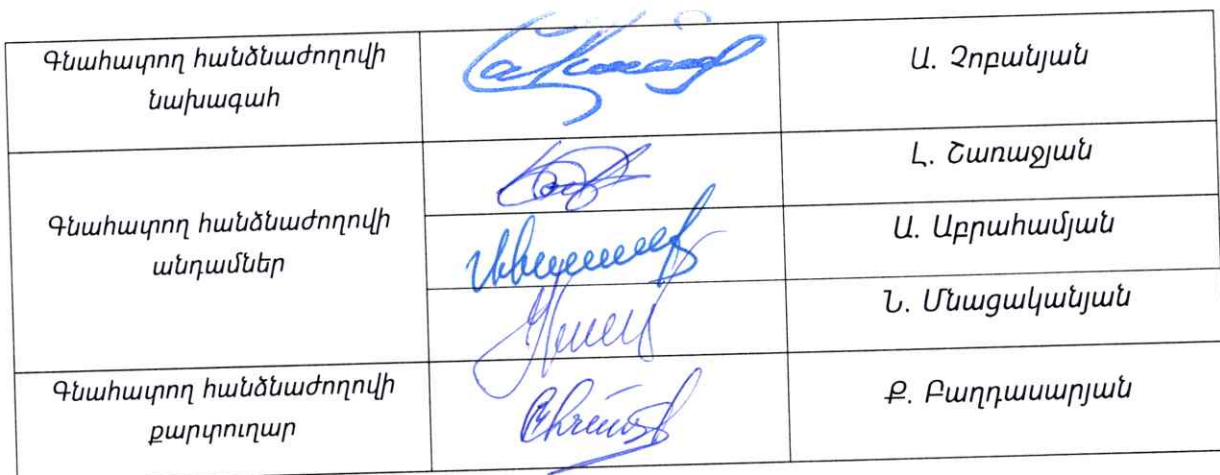 Գնահատող հանձնաժողովի
նախագահ
Ա. Չոբանյան
Գնահատող հանձնաժողովի
անդամներ
Լ. Շառաջյան
Ա. Աբրահամյան
Ն. Մնացականյան
Գնահատող հանձնաժողովի
քարտուղար
Ք. Բաղդասարյան